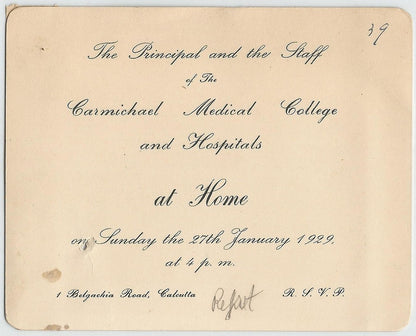 39
The Principal and the Staff
of The
Carmichael Medical College
and Hospitals
at Home
on Sunday the 27th January 1929,
at 4 p. m.
1 Belgachia Road, Calcutta R. S. V. P.